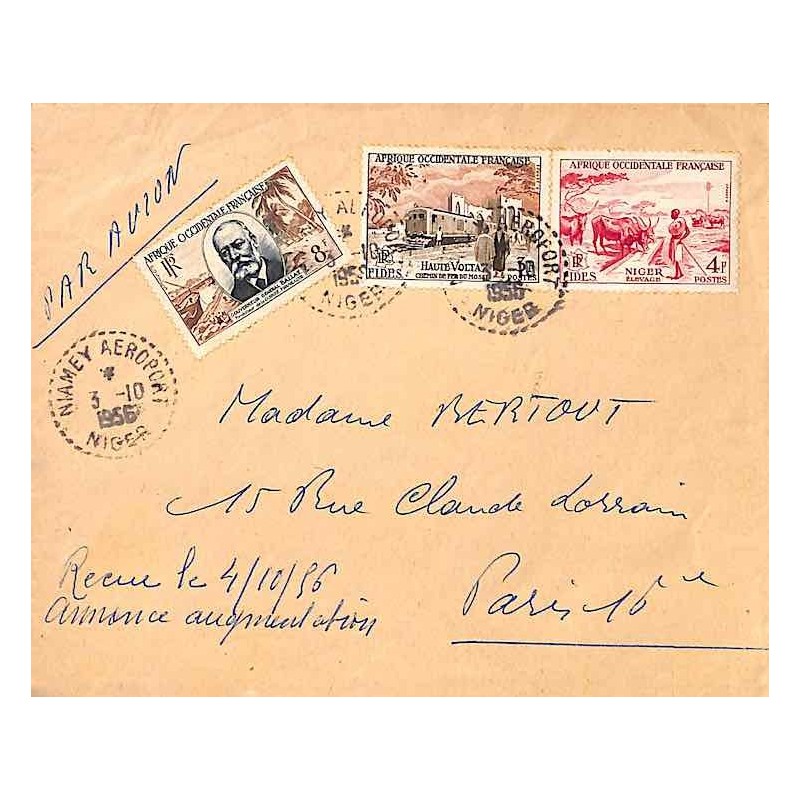 PAR AVION
AFRIQUE OCCIDENTALE FRANÇAISE
RF
8F
GOUVERNEUR GÉNÉRAL BALLAY
AFRIQUE OCCIDENTALE FRANÇAISE
RF
FIDES
HAUTE VOLTA
CHEMIN DE FER DU MOSSI
POSTES
AFRIQUE OCCIDENTALE FRANÇAISE
RF
FIDES
NIGER
ÉLEVAGE
4F
POSTES
NIAMEY AEROPORT
3 -10
1956
NIGER
Madame BERTOUT
15 Rue Claude Lorrain
Paris 16e
Recue le 4/10/56
Annonce augmentation